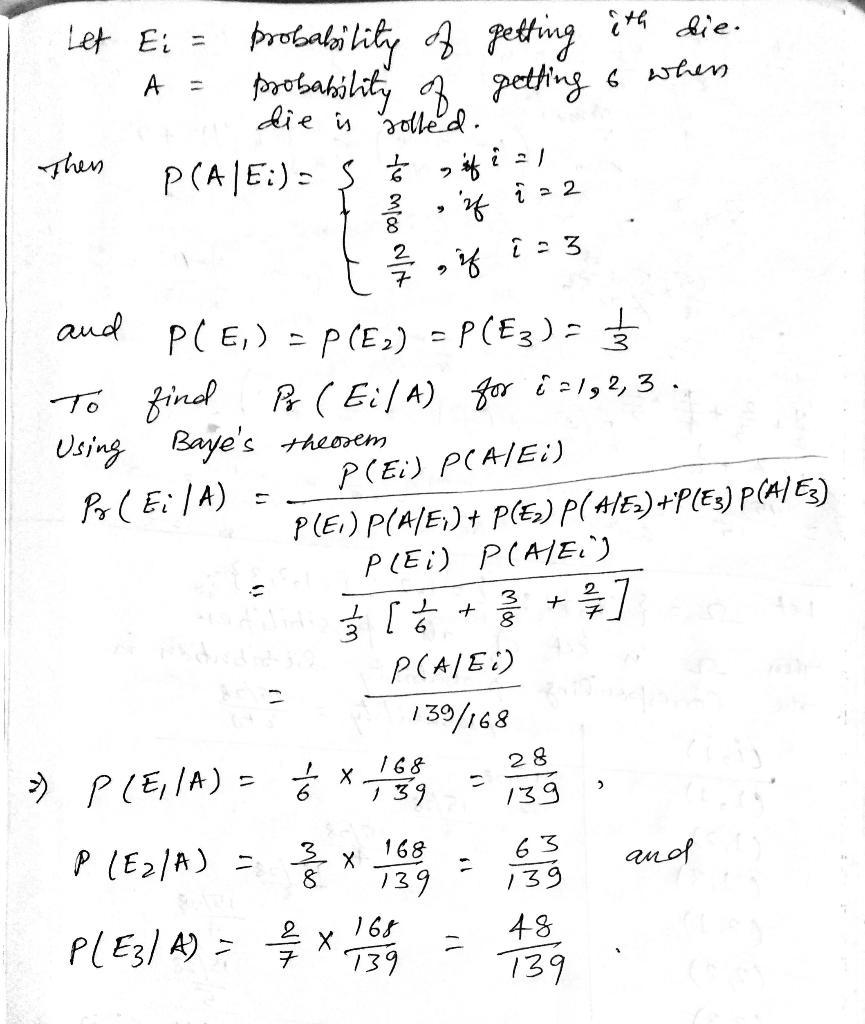 Let Ei = probability of getting ith die.
A = probability of getting 6 when
die is rolled.
Then P(A|Ei) = { 1/6 , if i = 1
3/8 , if i = 2
2/7 , if i = 3
and P(E1) = P(E2) = P(E3) = 1/3
To find Pr (Ei|A) for i = 1, 2, 3 .
Using Baye's theorem
Pr(Ei|A) = P(Ei) P(A|Ei) / P(E1) P(A|E1) + P(E2) P(A|E2) + P(E3) P(A|E3)
= P(Ei) P(A|Ei) / 1/3 [1/6 + 3/8 + 2/7]
= P(A|Ei) / 139/168
⇒ P(E1|A) = 1/6 × 168/139 = 28/139 ,
P(E2|A) = 3/8 × 168/139 = 63/139 and
P(E3|A) = 2/7 × 168/139 = 48/139 .